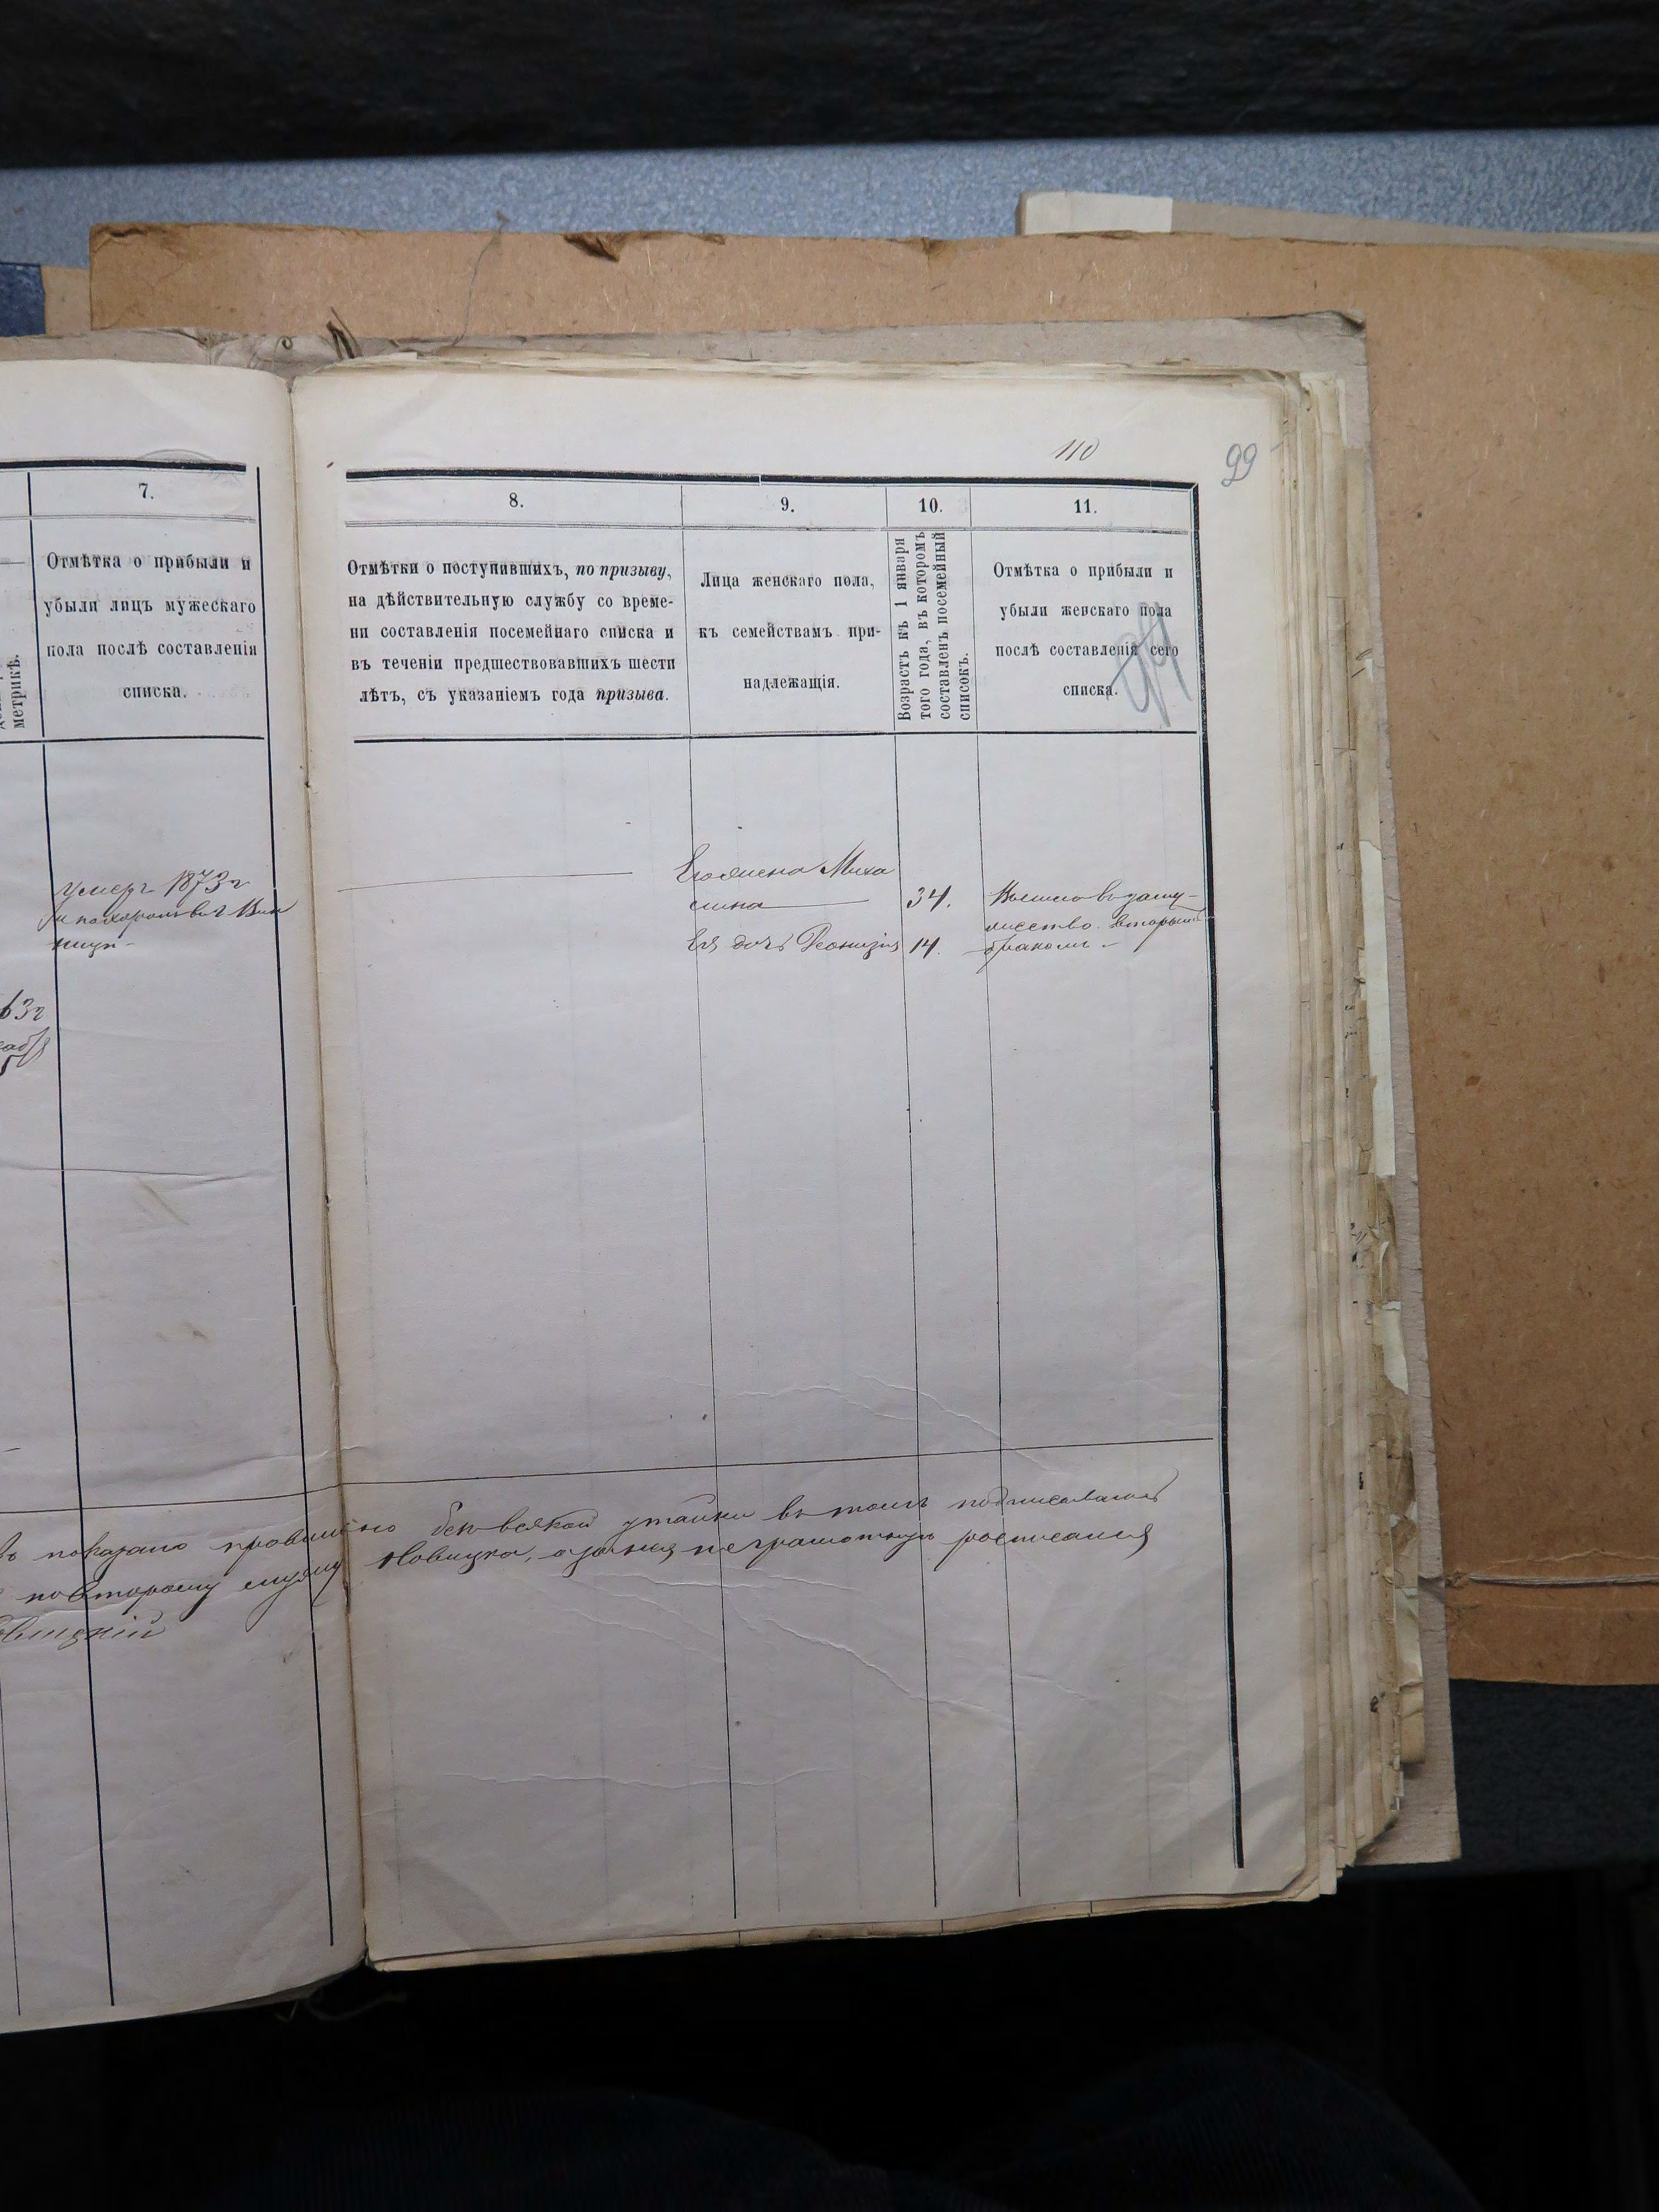 110
99
7.
Отмѣтка о прибыли и
убыли лицъ мужескаго
пола послѣ составленія
списка.
метрикѣ.
умеръ 1873 г
и похоронъ въ г Вин
ницѣ
63 г
8.
Отмѣтки о поступившихъ, по призыву,
на дѣйствительную службу со време-
ни составленія посемейнаго списка и
въ теченіи предшествовавшихъ шести
лѣтъ, съ указаніемъ года призыва.
9.
Лица женскаго пола,
къ семействамъ при-
надлежащія.
10.
Возрастъ къ 1 января
того года, въ которомъ
составленъ посемейный
списокъ.
11.
Отмѣтка о прибыли и
убыли женскаго пола
послѣ составленія сего
списка.
жена Миха
лина 34.
Ея дочь 14.
Вышла въ заму-
жество вторымъ
бракомъ
показано правильно безъ всякой утайки въ томъ подписываюсь
по второму мужу Новицка, а за нея неграмотную росписался